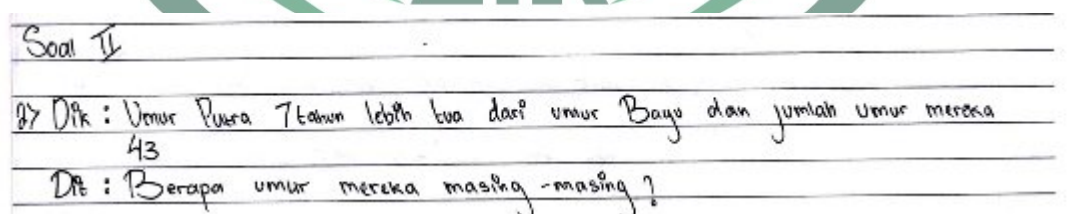 Soal II
2> Dik : Umur Putra 7 tahun lebih tua dari umur Bayu dan jumlah umur mereka
43
Dit : Berapa umur mereka masing-masing?